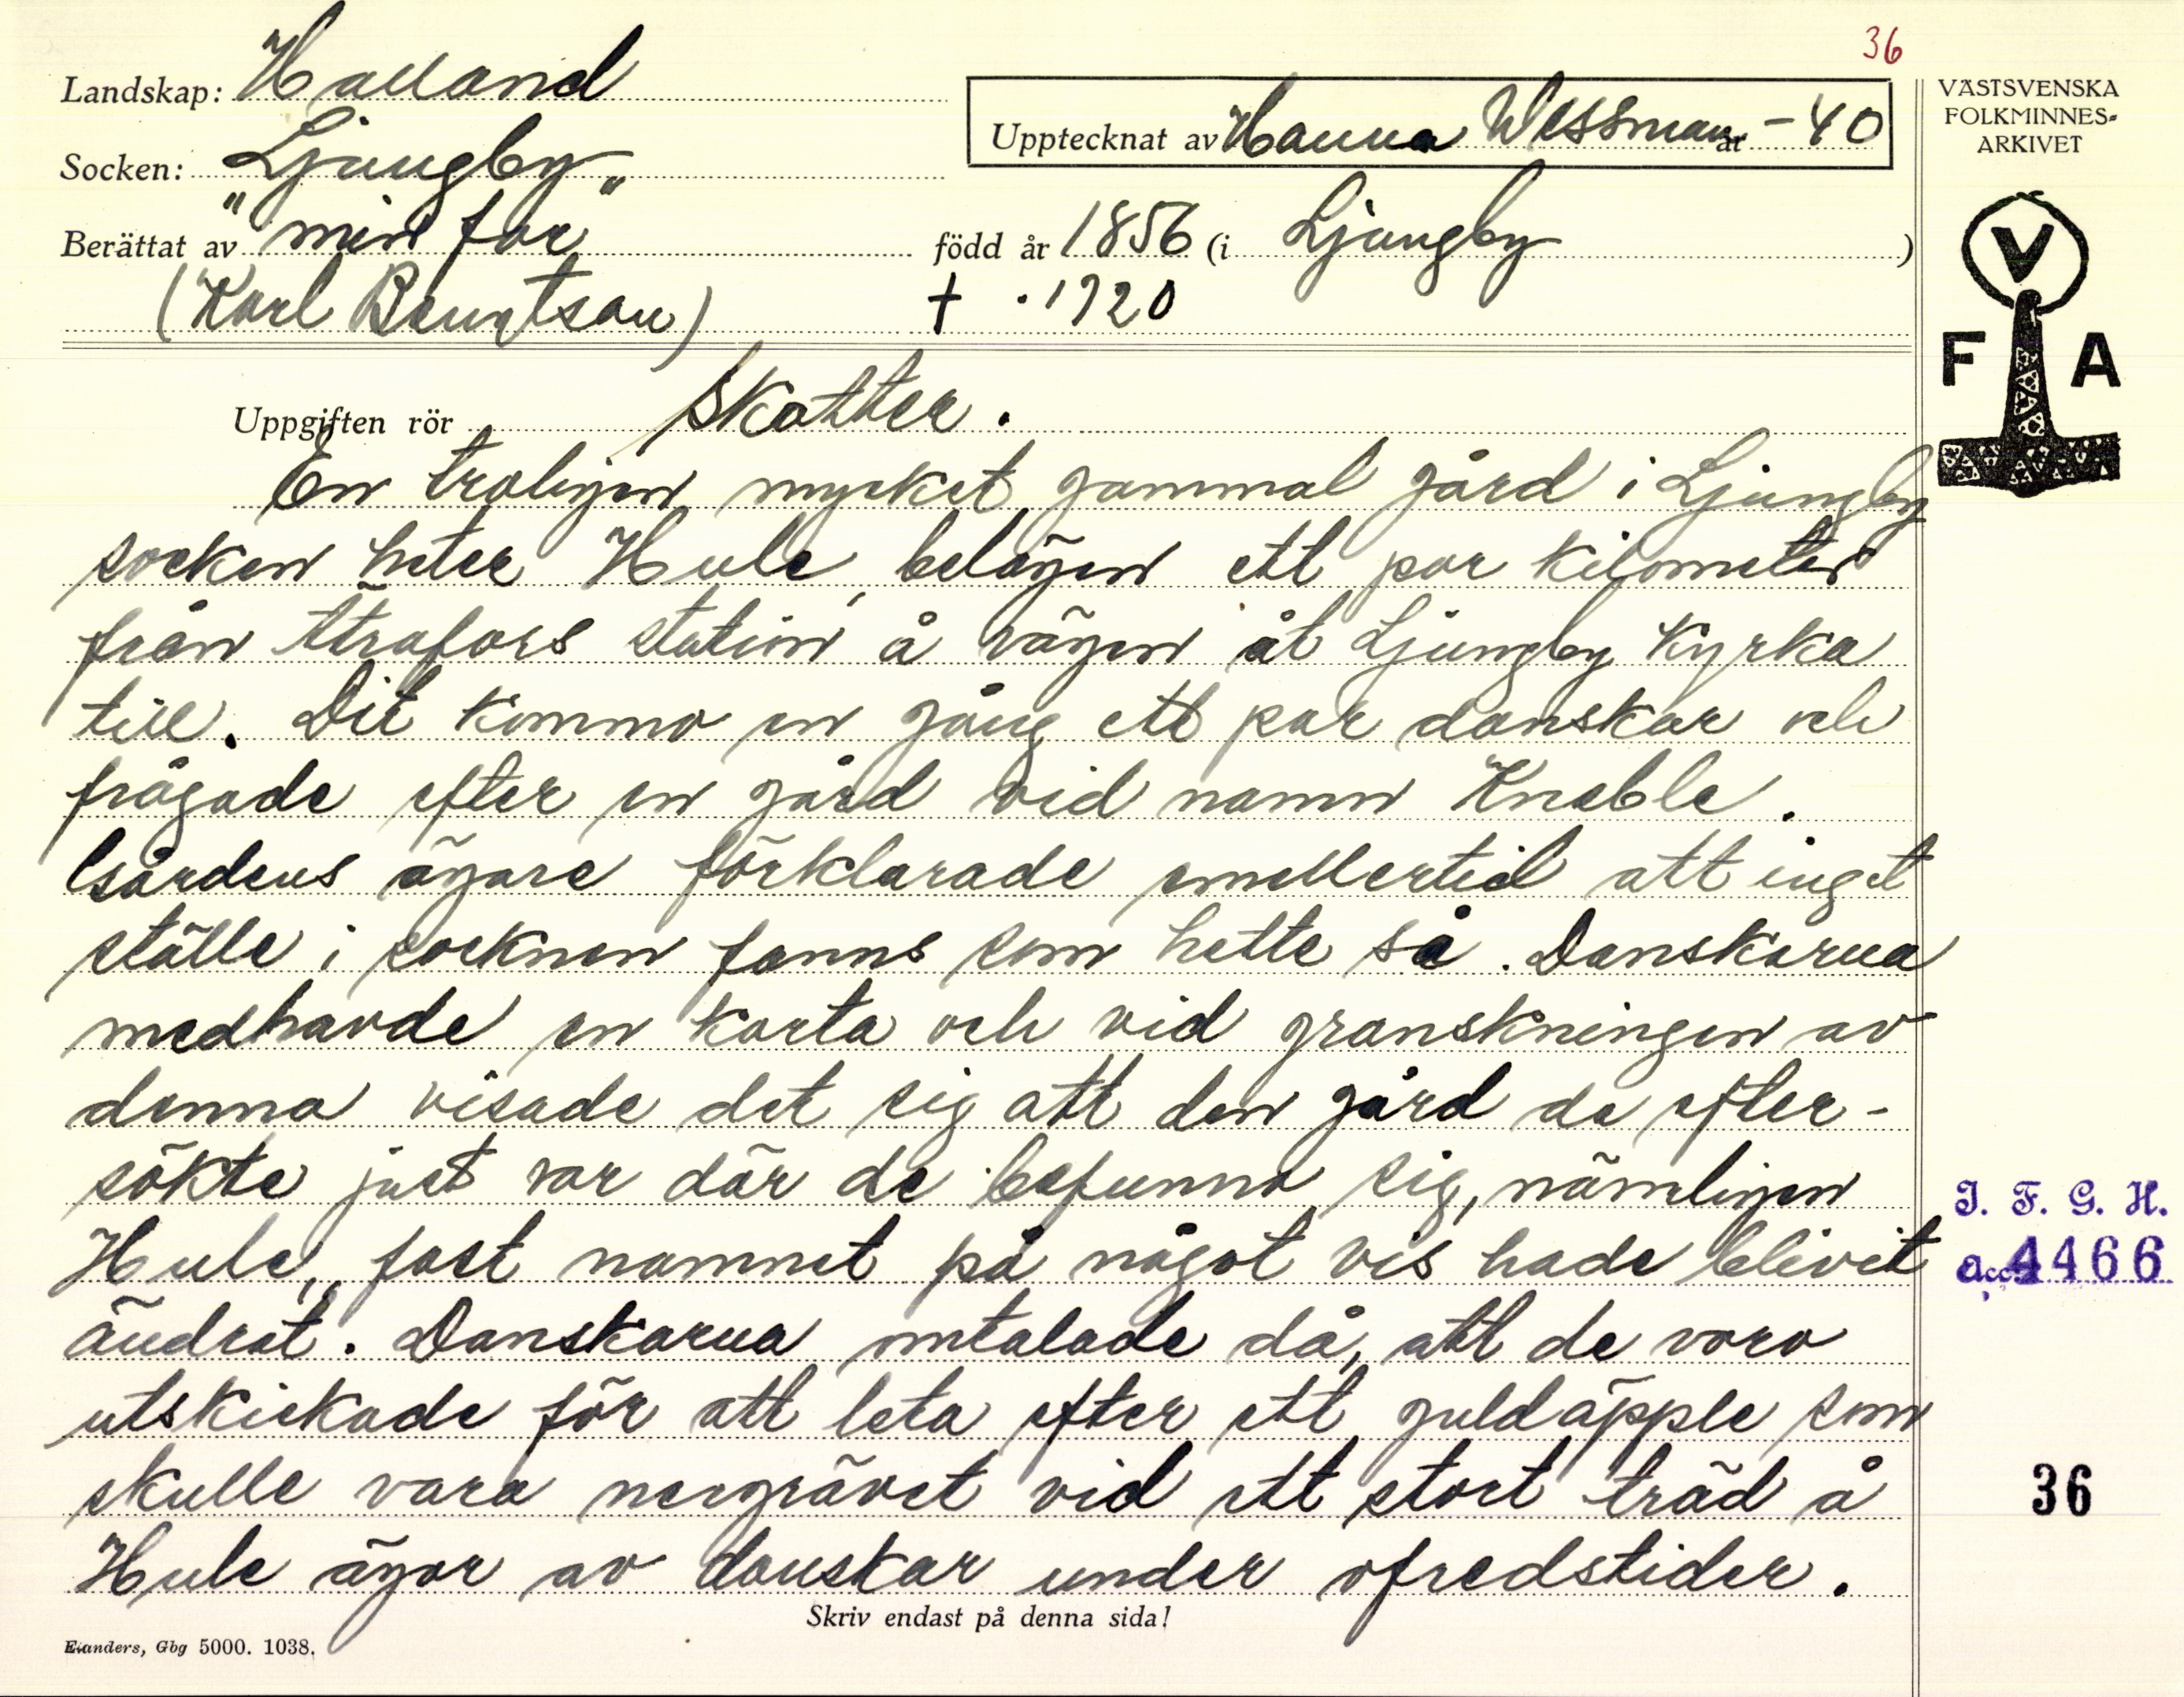 36
Landskap: Halland
Upptecknat av Hanna Wessman år -40
VÄSTSVENSKA
FOLKMINNES-
ARKIVET
Socken: Ljungby
Berättat av "min far" född år 1856 (i Ljungby)
(Karl Bengtson) † . 1920
V
F A
Uppgiften rör Skatter.
En troligen mycket gammal gård i Ljungby
socken heter Hule, belägen ett par kilometer
från Ätrafors station å vägen åt Ljungby Kyrka
till. Dit kommo en gång ett par danskar och
frågade efter en gård vid namn Kneble.
Gårdens ägare förklarade emellertid att inget
ställe i socknen fanns som hette så. Danskarna
medhavde en karta och vid granskningen av
denna visade det sig att den gård de efter-
sökte just var där de befunno sig, nämligen
Hule, fast namnet på något vis hade blivit
ändrat. Danskarna omtalade då, att de voro
utskickade för att leta efter ett guldäpple som
skulle vara nergrävet vid ett stort träd å
Hule ägor av danskar under ofredstider.
I. F. G. H.
Acc. 4466
36
Skriv endast på denna sida!
Elanders, Gbg 5000. 1038.